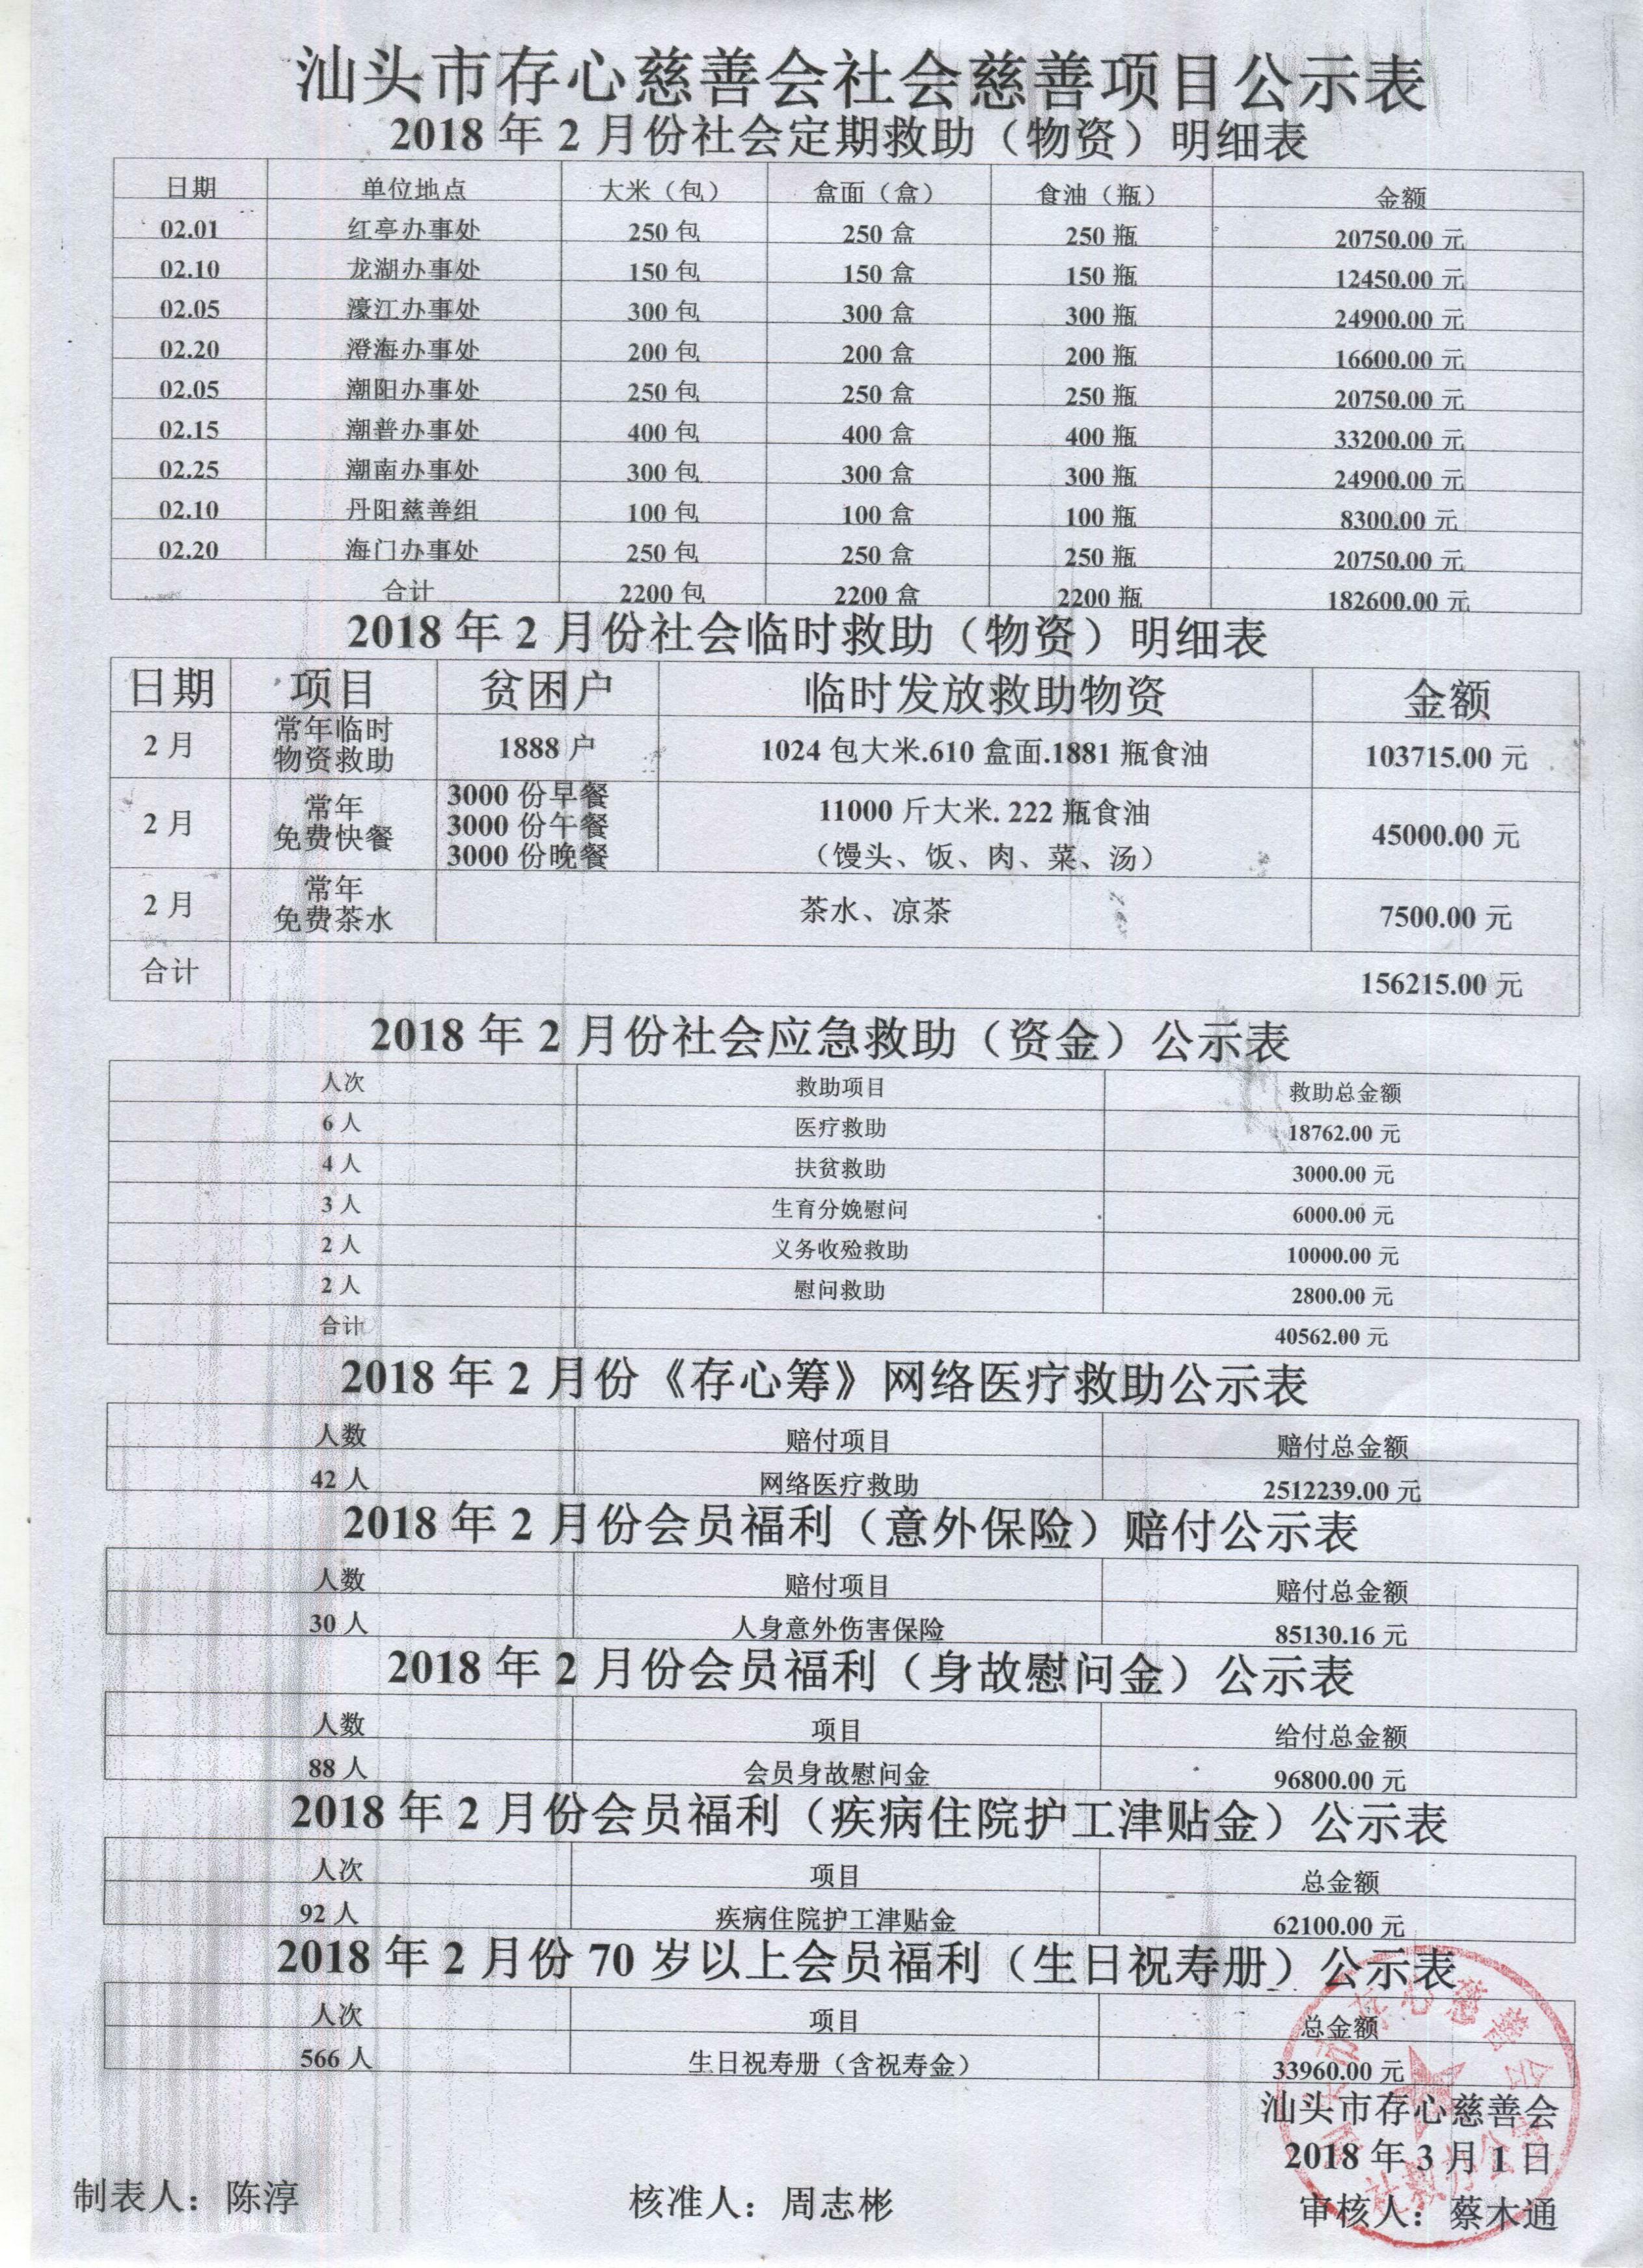 汕头市存心慈善会社会慈善项目公示表
2018 年 2 月份社会定期救助（物资）明细表
日期 单位地点 大米（包） 盒面（盒） 食油（瓶） 金额
02.01 红亭办事处 250 包 250 盒 250 瓶 20750.00 元
02.10 龙湖办事处 150 包 150 盒 150 瓶 12450.00 元
02.05 濠江办事处 300 包 300 盒 300 瓶 24900.00 元
02.20 澄海办事处 200 包 200 盒 200 瓶 16600.00 元
02.05 潮阳办事处 250 包 250 盒 250 瓶 20750.00 元
02.15 潮普办事处 400 包 400 盒 400 瓶 33200.00 元
02.25 潮南办事处 300 包 300 盒 300 瓶 24900.00 元
02.10 丹阳慈善组 100 包 100 盒 100 瓶 8300.00 元
02.20 海门办事处 250 包 250 盒 250 瓶 20750.00 元
合计 2200 包 2200 盒 2200 瓶 182600.00 元
2018 年 2 月份社会临时救助（物资）明细表
日期 项目 贫困户 临时发放救助物资 金额
2 月 常年临时
物资救助 1888 户 1024 包大米.610 盒面.1881 瓶食油 103715.00 元
2 月 常年
免费快餐 3000 份早餐
3000 份午餐
3000 份晚餐 11000 斤大米. 222 瓶食油
（馒头、饭、肉、菜、汤） 45000.00 元
2 月 常年
免费茶水 茶水、凉茶 7500.00 元
合计 156215.00 元
2018 年 2 月份社会应急救助（资金）公示表
人次 救助项目 救助总金额
6 人 医疗救助 18762.00 元
4 人 扶贫救助 3000.00 元
3 人 生育分娩慰问 6000.00 元
2 人 义务收殓救助 10000.00 元
2 人 慰问救助 2800.00 元
合计 40562.00 元
2018 年 2 月份《存心筹》网络医疗救助公示表
人数 赔付项目 赔付总金额
42 人 网络医疗救助 2512239.00 元
2018 年 2 月份会员福利（意外保险）赔付公示表
人数 赔付项目 赔付总金额
30 人 人身意外伤害保险 85130.16 元
2018 年 2 月份会员福利（身故慰问金）公示表
人数 项目 给付总金额
88 人 会员身故慰问金 96800.00 元
2018 年 2 月份会员福利（疾病住院护工津贴金）公示表
人次 项目 总金额
92 人 疾病住院护工津贴金 62100.00 元
2018 年 2 月份 70 岁以上会员福利（生日祝寿册）公示表
人次 项目 总金额
566 人 生日祝寿册（含祝寿金） 33960.00 元
汕头市存心慈善会
2018 年 3 月 1 日
制表人：陈淳 核准人：周志彬 审核人：蔡木通